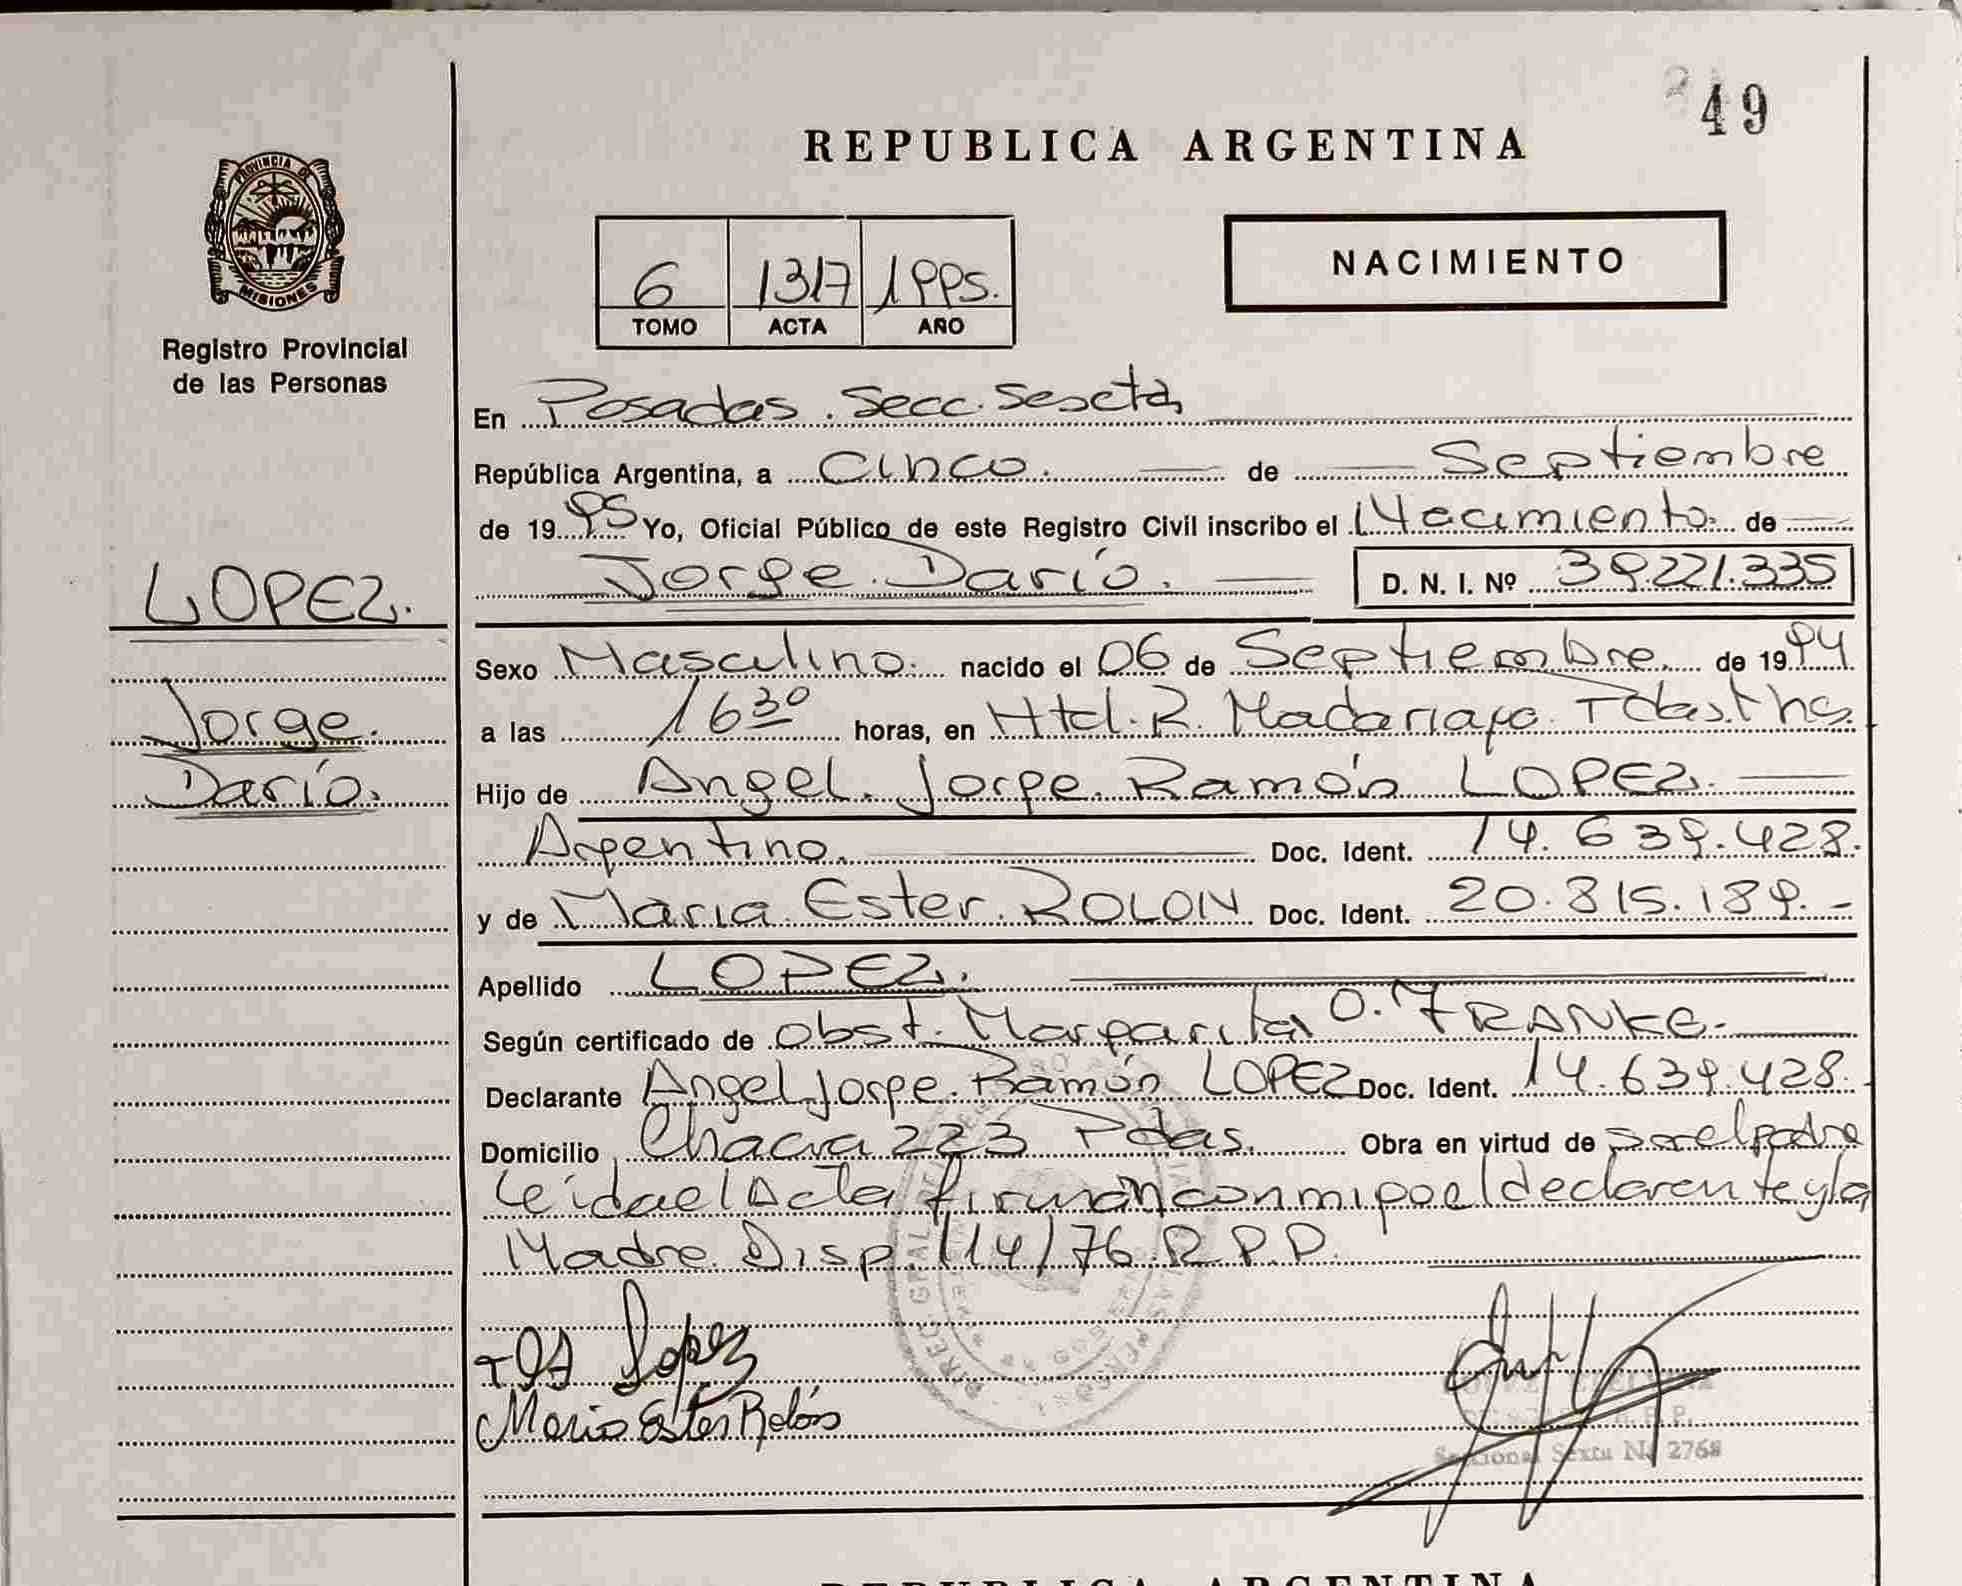 249
REPUBLICA ARGENTINA
PROVINCIA DE
MISIONES
Registro Provincial
de las Personas
6 1317 1995.
TOMO ACTA AÑO
NACIMIENTO
LOPEZ.
Jorge.
Darío.
En Posadas. Secc. Sexta
República Argentina, a Cinco. de Septiembre
de 1995 Yo, Oficial Público de este Registro Civil inscribo el Nacimiento. de
Jorge. Darío. D. N. I. Nº 39.221.335
Sexo Masculino. nacido el 06 de Septiembre. de 1994
a las 1630 horas, en Htal. R. Madariaga. Pdas. Mnes.
Hijo de Angel. Jorge. Ramón LOPEZ.
Argentino. Doc. Ident. 14.639.428.
y de María. Ester. ROLON Doc. Ident. 20.815.189.-
Apellido LOPEZ.
Según certificado de Obst. Margarita O. FRANKE.-
Declarante Angel Jorge. Ramón LOPEZ Doc. Ident. 14.639.428.
Domicilio Chacra 223 Pdas. Obra en virtud de ser el padre
Leida el Acta firman conmigo el declarante y la
Madre. Disp. 114/76. R.P.P.
Lopez
Maria Ester Rolón
Seccional Sexta Nº 2768
REPUBLICA ARGENTINA